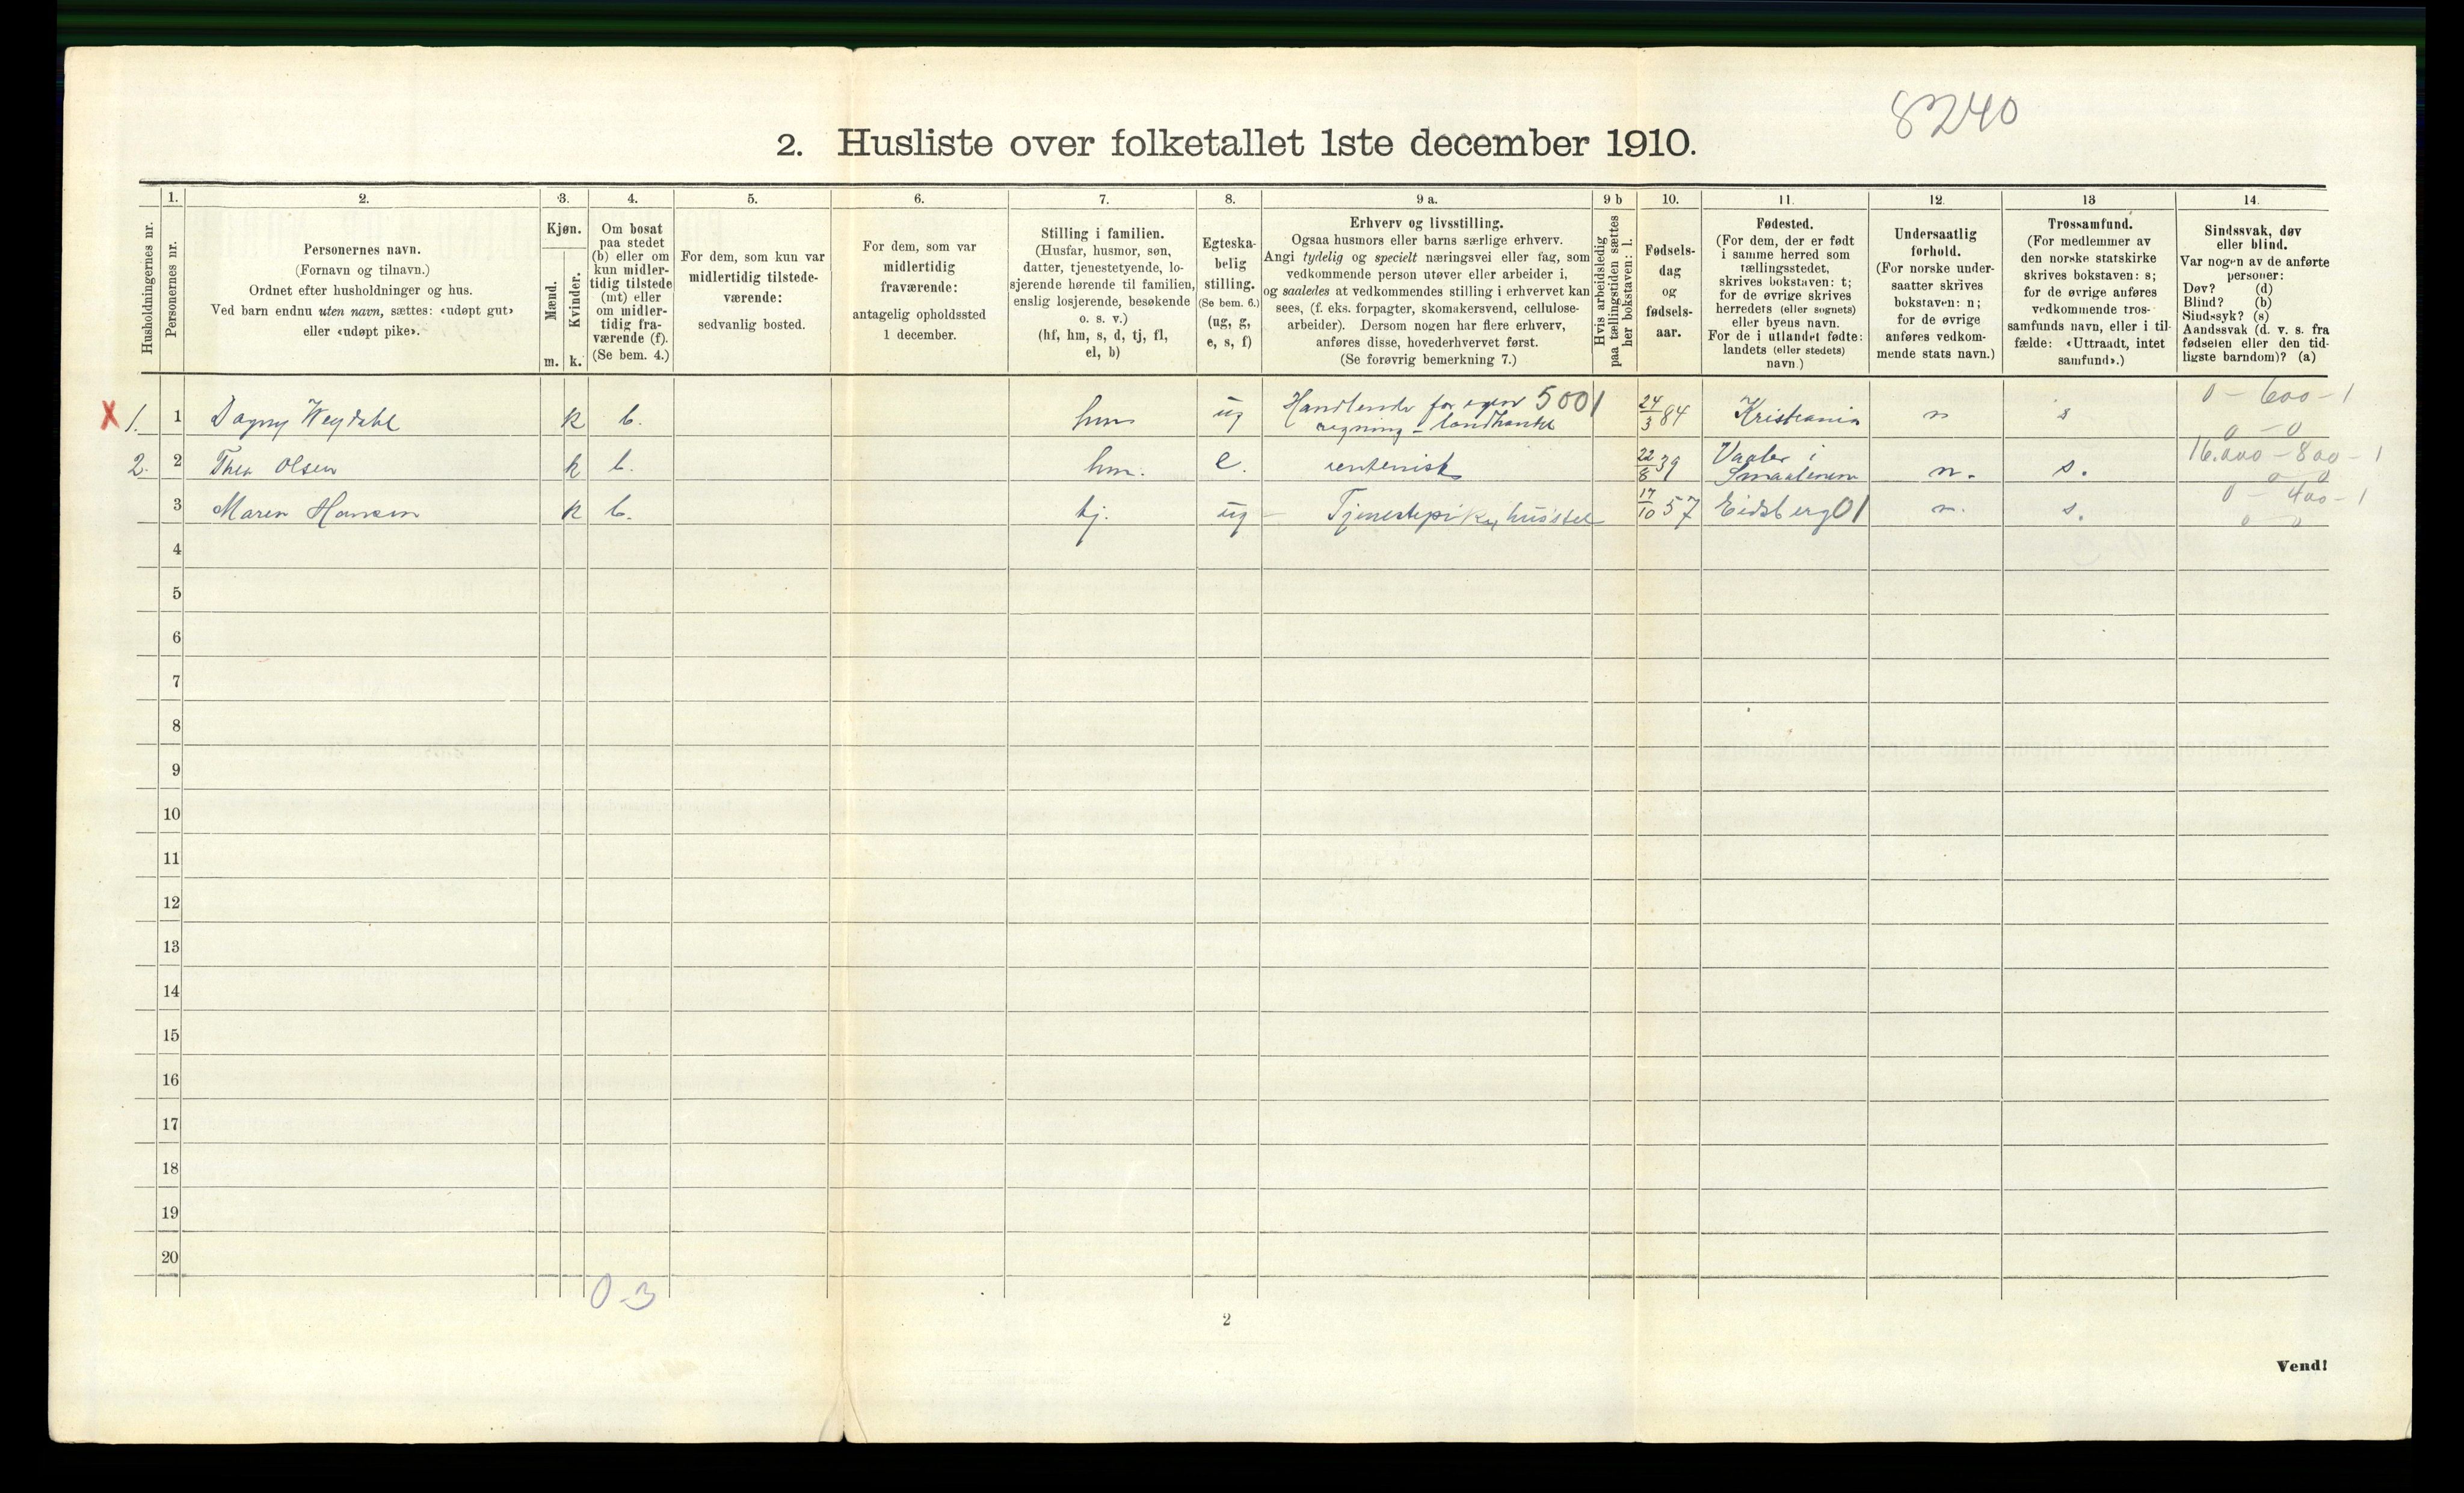 8240
2. Husliste over folketallet 1ste december 1910.
Husholdningernes nr.
1.
Personernes nr.
2.
Personernes navn.
(Fornavn og tilnavn.)
Ordnet efter husholdninger og hus.
Ved barn endnu uten navn, sættes: «udøpt gut»
eller «udøpt pike».
3.
Kjøn.
Mænd.
m.
Kvinder.
k.
4.
Om bosat
paa stedet
(b) eller om
kun midler-
tidig tilstede
(mt) eller
om midler-
tidig fra-
værende (f).
(Se bem. 4.)
5.
For dem, som kun var
midlertidig tilstede-
værende:
sedvanlig bosted.
6.
For dem, som var
midlertidig
fraværende:
antagelig opholdssted
1 december.
7.
Stilling i familien.
(Husfar, husmor, søn,
datter, tjenestetyende, lo-
sjerende hørende til familien,
enslig losjerende, besøkende
o. s. v.)
(hf, hm, s, d, tj, fl,
el, b)
8.
Egteska-
belig
stilling.
(Se bem. 6.)
(ug, g,
e, s, f)
9 a.
Erhverv og livsstilling.
Ogsaa husmors eller barns særlige erhverv.
Angi tydelig og specielt næringsvei eller fag, som
vedkommende person utøver eller arbeider i,
og saaledes at vedkommendes stilling i erhvervet kan
sees, (f. eks. forpagter, skomakersvend, cellulose-
arbeider). Dersom nogen har flere erhverv,
anføres disse, hovederhvervet først.
(Se forøvrig bemerkning 7.)
9 b
Hvis arbeidsledig
paa tællingstiden sættes
her bokstaven: l.
10.
Fødsels-
dag
og
fødsels-
aar.
11.
Fødested.
(For dem, der er født
i samme herred som
tællingsstedet,
skrives bokstaven: t;
for de øvrige skrives
herredets (eller sognets)
eller byens navn.
For de i utlandet fødte:
landets (eller stedets)
navn.)
12.
Undersaatlig
forhold.
(For norske under-
saatter skrives
bokstaven: n;
for de øvrige
anføres vedkom-
mende stats navn.)
13
Trossamfund.
(For medlemmer av
den norske statskirke
skrives bokstaven: s;
for de øvrige anføres
vedkommende tros-
samfunds navn, eller i til-
fælde: «Uttraadt, intet
samfund».)
14.
Sindssvak, døv
eller blind.
Var nogen av de anførte
personer:
Døv? (d)
Blind? (b)
Sindssyk? (s)
Aandssvak (d. v. s. fra
fødselen eller den tid-
ligste barndom)? (a)
X 1. 1 Dagny Weydahl k b. hm ug Handlende for egen 5001 24/3 84 Kristiania n s 0 - 600 - 1
regning - landhandel 0 - 0
2. 2 Thea Olsen k b. hm. e. rentenist 22/8 39 Vaaler i n. s. 16.000 - 800 - 1
Smaalenene 0 0
3 Maren Hansen k b. tj. ug - Tjenestepike, husstel 17/10 57 Eidsberg 01 n. s. 0 - 400 - 1
0 0
4
5
6
7
8
9
10
11
12
13
14
15
16
17
18
19
20
0 3
2
Vend!